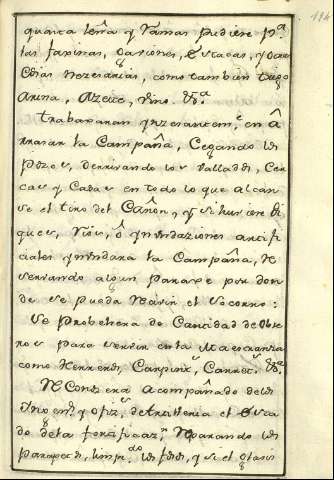 184
quanta leña y Ramas pudiere p.ª
las faxinas, Gaviones, Estacas, y
cosas nezesarias, como tambien trigo
Arina, Azeite, Vino &.ª
Trabaxaran ynzesantem.te en A
rrasar la Campaña, Cegando los
Pozos, derrivando los Valladós, Cer
cas y Casas en todo lo que alcan
se el tiro del Cañon, y si huviere Di
ques, Rios, ô ynundaziones artifi
ciales ynundara la Campaña, Re
servando algun Parage por don
de se pueda Resivir el Socorro:
Se Probehera de Cantidad de Obre
ros para servir en la Maestranza
como Herreros, Carpint.s, Carret.s &.ª
Reconosera acompañado de los
Yngen.s y Ofiz.s de Artilleria el Esta
do de la fortificaz.n Reparando los
Parapetos, limp.do los fosos, y si el Glasis